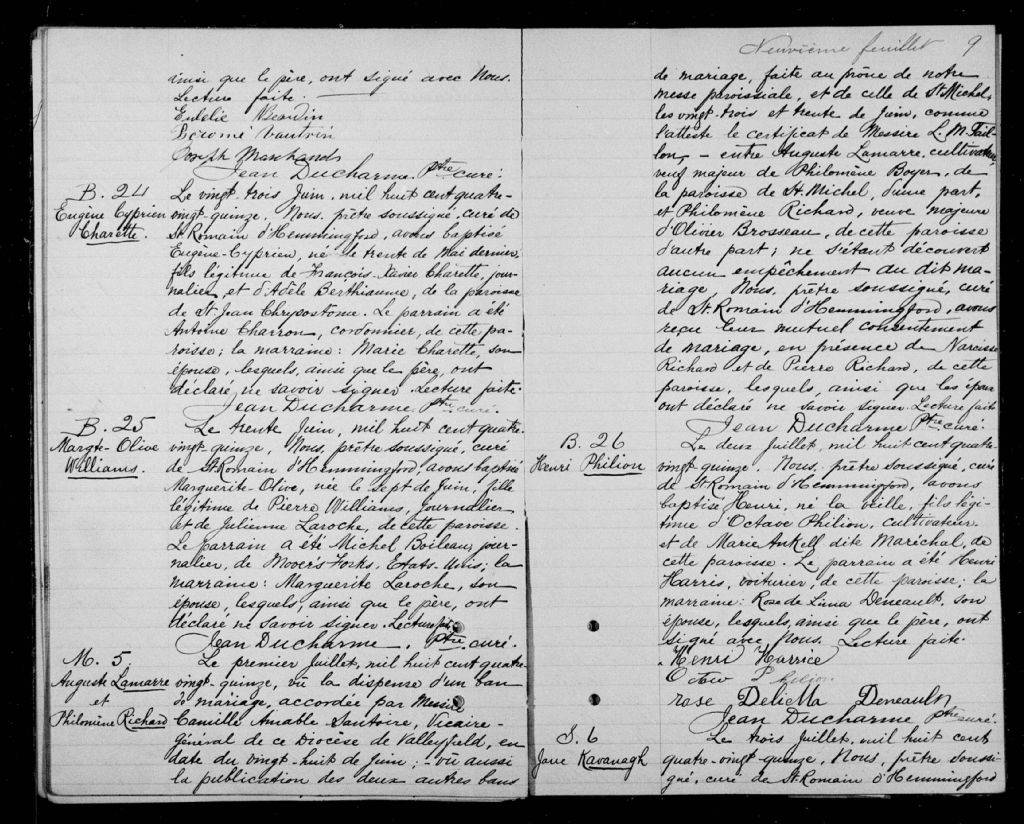 ainsi que le père, ont signé avec Nous.
Lecture faite.
Eulélie
Jérome Vautrin
Joseph Marchand
Jean Ducharme Ptre curé.
B. 24
Eugène Cyprien
Charette.
Le vingt-trois Juin, mil huit cent quatre-
vingt-quinze, Nous, prêtre soussigné, curé de
St. Romain d'Hemmingford, avons baptisé
Eugène-Cyprien, né le trente de Mai dernier,
fils légitime de François-Xavier Charette, jour-
nalier, et d'Adèle Berthiaume, de la paroisse
de St. Jean Chrysostome. Le parrain a été
Antoine Charron, cordonnier, de cette pa-
roisse; la marraine: Marie Charette, son
épouse, lesquels, ainsi que le père, ont
déclaré ne savoir signer. Lecture faite.
Jean Ducharme Ptre curé.
B. 25
Margte-Olive
Williams.
Le trente Juin, mil huit cent quatre-
vingt-quinze, Nous, prêtre soussigné, curé
de St. Romain d'Hemmingford, avons baptisé
Marguerite-Olive, née le sept de Juin, fille
légitime de Pierre Williams, journalier
et de Julienne Laroche, de cette paroisse.
Le parrain a été Michel Boileau, jour-
nalier, de Mooers Forks, Etats-Unis; la
marraine: Marguerite Laroche, son
épouse, lesquels, ainsi que le père, ont
déclaré ne savoir signer. Lecture faite.
Jean Ducharme, Ptre curé.
M. 5
Auguste Lamarre
et
Philomène Richard
Le premier Juillet, mil huit cent quatre-
vingt-quinze, vû la dispense d'un ban
de mariage, accordée par Messire
Camille Amable Santoire, Vicaire-
général de ce Diocèse de Valleyfield, en
date du vingt-huit de Juin; - vû aussi
la publication des deux autres bans
Neuvième feuillet 9
de mariage, faite au prône de notre
messe paroissiale, et de celle de St. Michel,
les vingt-trois et trente de Juin, comme
l'atteste le certificat de Messire L. M. Tail-
lon, - entre Auguste Lamarre, cultivateur,
veuf majeur de Philomène Boyer, de
la paroisse de St. Michel, d'une part,
et Philomène Richard, veuve majeure
d'Olivier Brosseau, de cette paroisse
d'autre part; ne s'étant découvert
aucun empêchement au dit ma-
riage, Nous, prêtre soussigné, curé
de St. Romain d'Hemmingford, avons
reçu leur mutuel consentement
de mariage, en présence de Narcisse
Richard et de Pierre Richard, de cette
paroisse, lesquels, ainsi que les époux
ont déclaré ne savoir signer. Lecture faite
Jean Ducharme Ptre curé.
B. 26
Henri Philion
Le deux Juillet, mil huit cent quatre-
vingt-quinze, Nous, prêtre soussigné, curé
de St. Romain d'Hemmingford, avons
baptisé Henri, né la veille, fils légi-
time d'Octave Philion, cultivateur
et de Marie Ankell dite Maréchal, de
cette paroisse. Le parrain a été Henri
Harris, voiturier, de cette paroisse; la
marraine: Rose de Lima Deneault, son
épouse, lesquels, ainsi que le père, ont
signé avec Nous. Lecture faite.
Henri Harrice
Octav
rose DelicMa Deneault
Jean Ducharme Ptre curé.
S. 6
Jane Kavanagh
Le trois Juillet, mil huit cent
quatre-vingt-quinze, Nous, prêtre soussi-
gné, curé de St. Romain d'Hemmingford